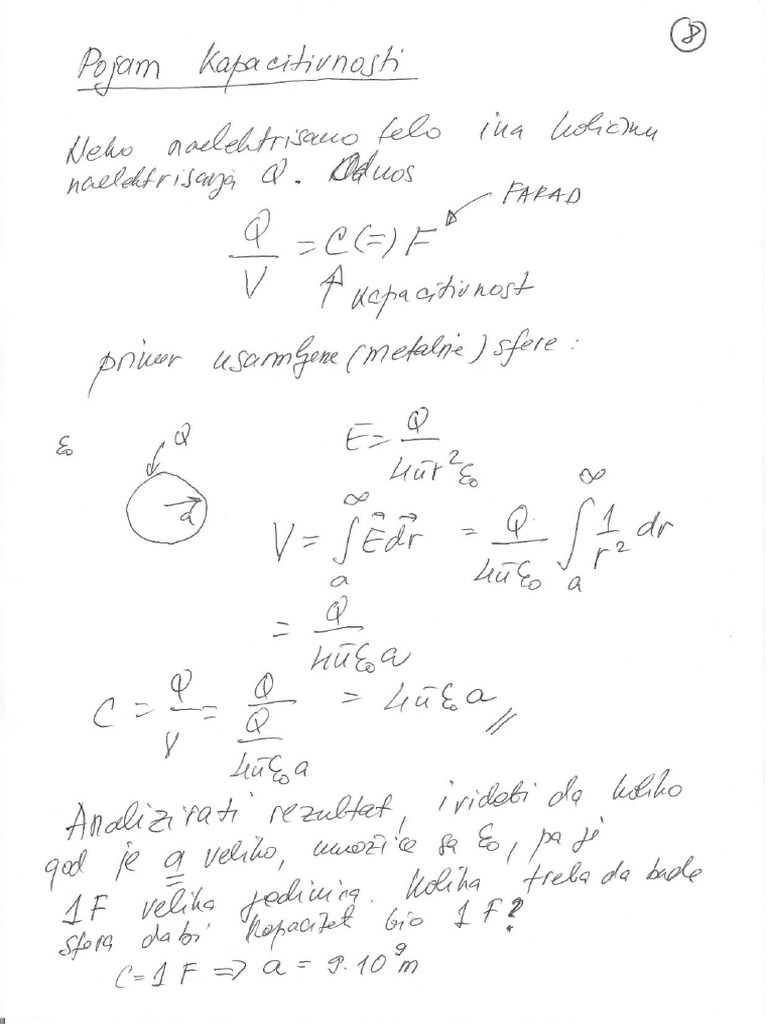 8
Pojam Kapacitivnosti
Neko naelektrisano telo ima količinu
naelektrisanja Q. Odnos
FARAD
Q/V = C (=) F
↑ kapacitivnost
primer usamljene (metalne) sfere:
ε₀ Q a
E = Q/(4πr²ε₀)
V = ∫ₐ^∞ E⃗ dr⃗ = Q/(4πε₀) ∫ₐ^∞ 1/r² dr
= Q/(4πε₀a)
C = Q/V = Q/(Q/(4πε₀a)) = 4πε₀a //
Analizirati rezultat, i videti da koliko
god je a veliko, množiće sa ε₀, pa je
1F velika jedinica. Kolika treba da bude
sfera da bi kapacitet bio 1F?
C = 1F => a = 9·10⁹m